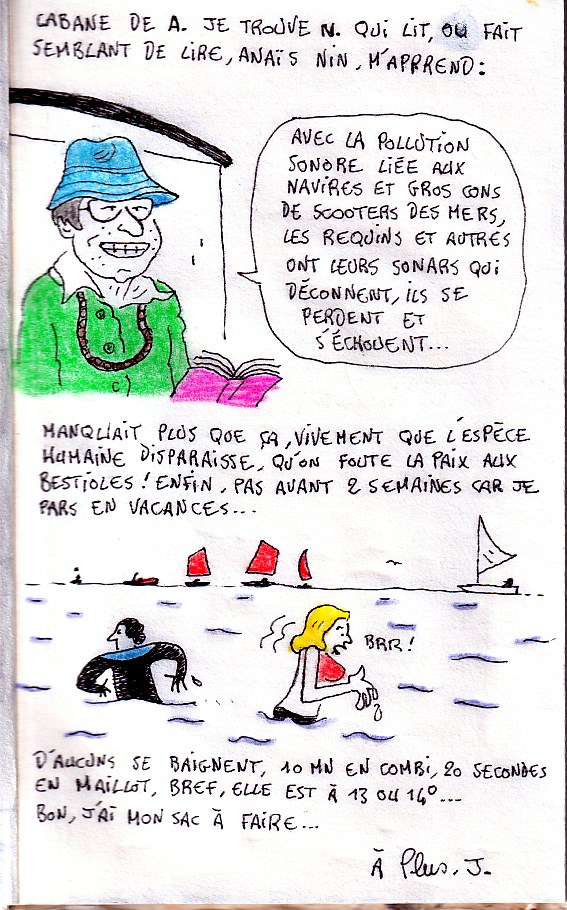 CABANE DE A. JE TROUVE N. QUI LIT, OU FAIT
SEMBLANT DE LIRE, ANAÏS NIN, M'APPREND:
AVEC LA POLLUTION
SONORE LIÉE AUX
NAVIRES ET GROS CONS
DE SCOOTERS DES MERS,
LES REQUINS ET AUTRES
ONT LEURS SONARS QUI
DÉCONNENT, ILS SE
PERDENT ET
S'ÉCHOUENT...
MANQUAIT PLUS QUE ÇA, VIVEMENT QUE L'ESPÈCE
HUMAINE DISPARAISSE, QU'ON FOUTE LA PAIX AUX
BESTIOLES! ENFIN, PAS AVANT 2 SEMAINES CAR JE
PARS EN VACANCES...
BRR!
D'AUCUNS SE BAIGNENT, 10 MN EN COMBI, 20 SECONDES
EN MAILLOT, BREF, ELLE EST À 13 OU 14°...
BON, J'AI MON SAC À FAIRE...
À Plus. J.